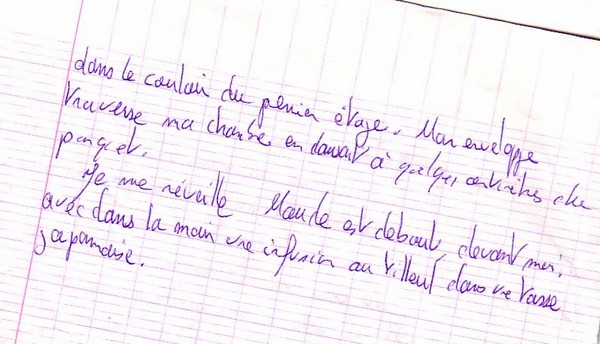 dans le couloir du premier étage. Mon enveloppe
traverse ma chambre en dansant à quelques centimètres du
parquet.
Je me réveille Maude est debout, devant moi,
avec dans la main une infusion au tilleul dans une tasse
japonaise.